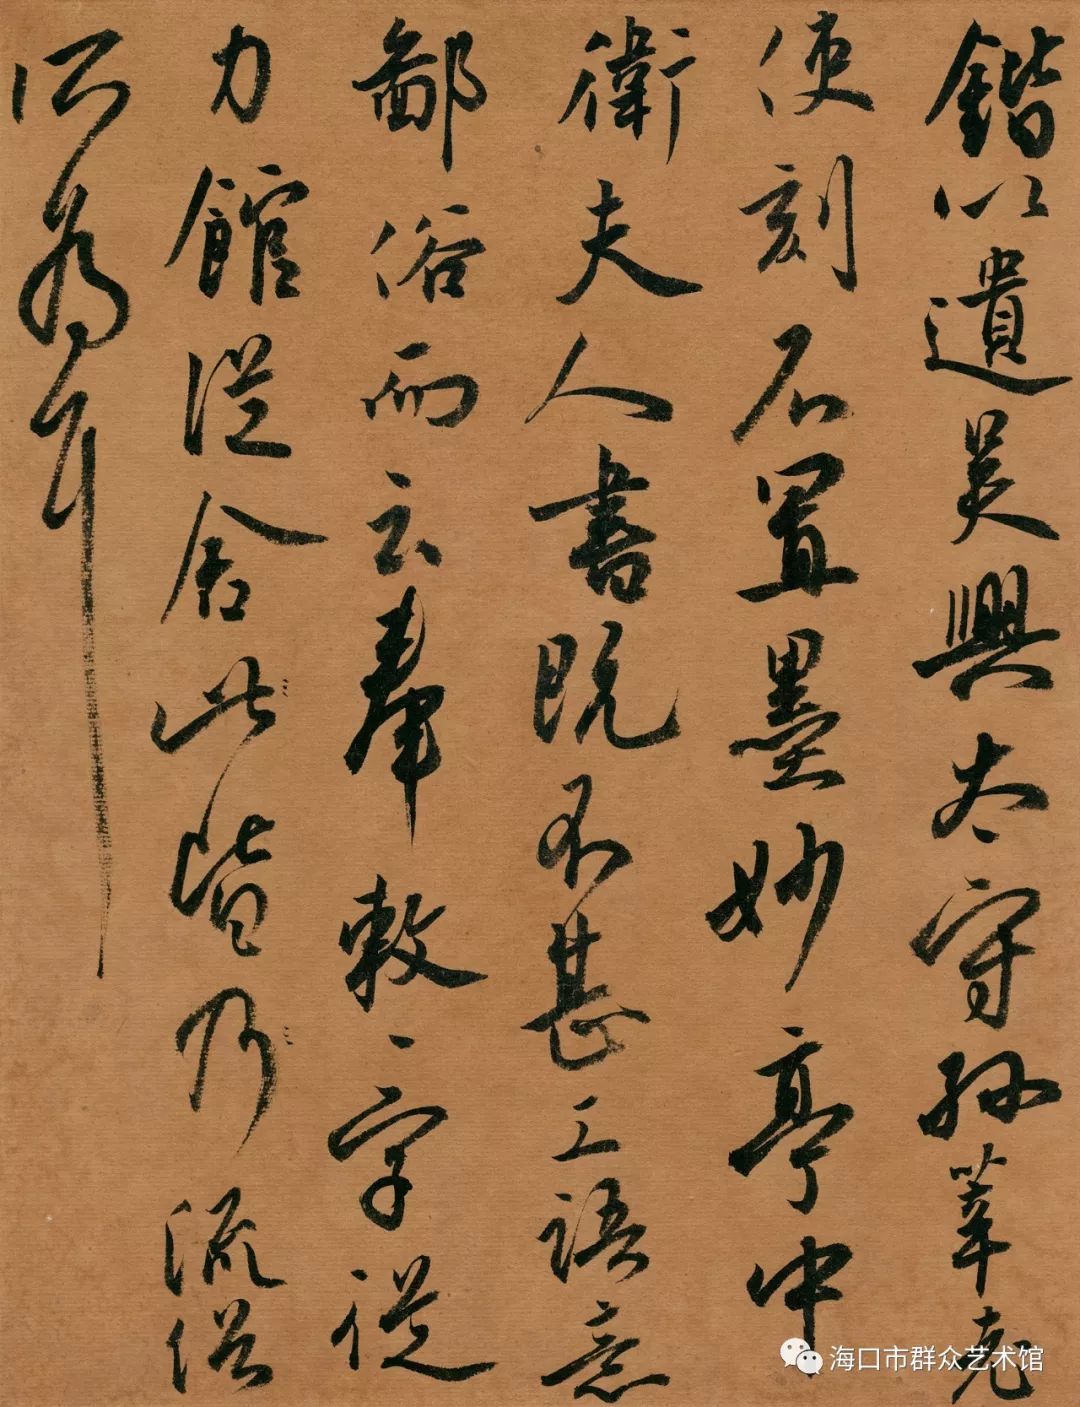 鍇以遺吳興太守孫莘老
使刻石置墨妙亭中
衛夫人書既不甚工語意
鄙俗而云奉敕丶字從
力館從舍此皆乃流俗
所爲耳
海口市群众艺术馆